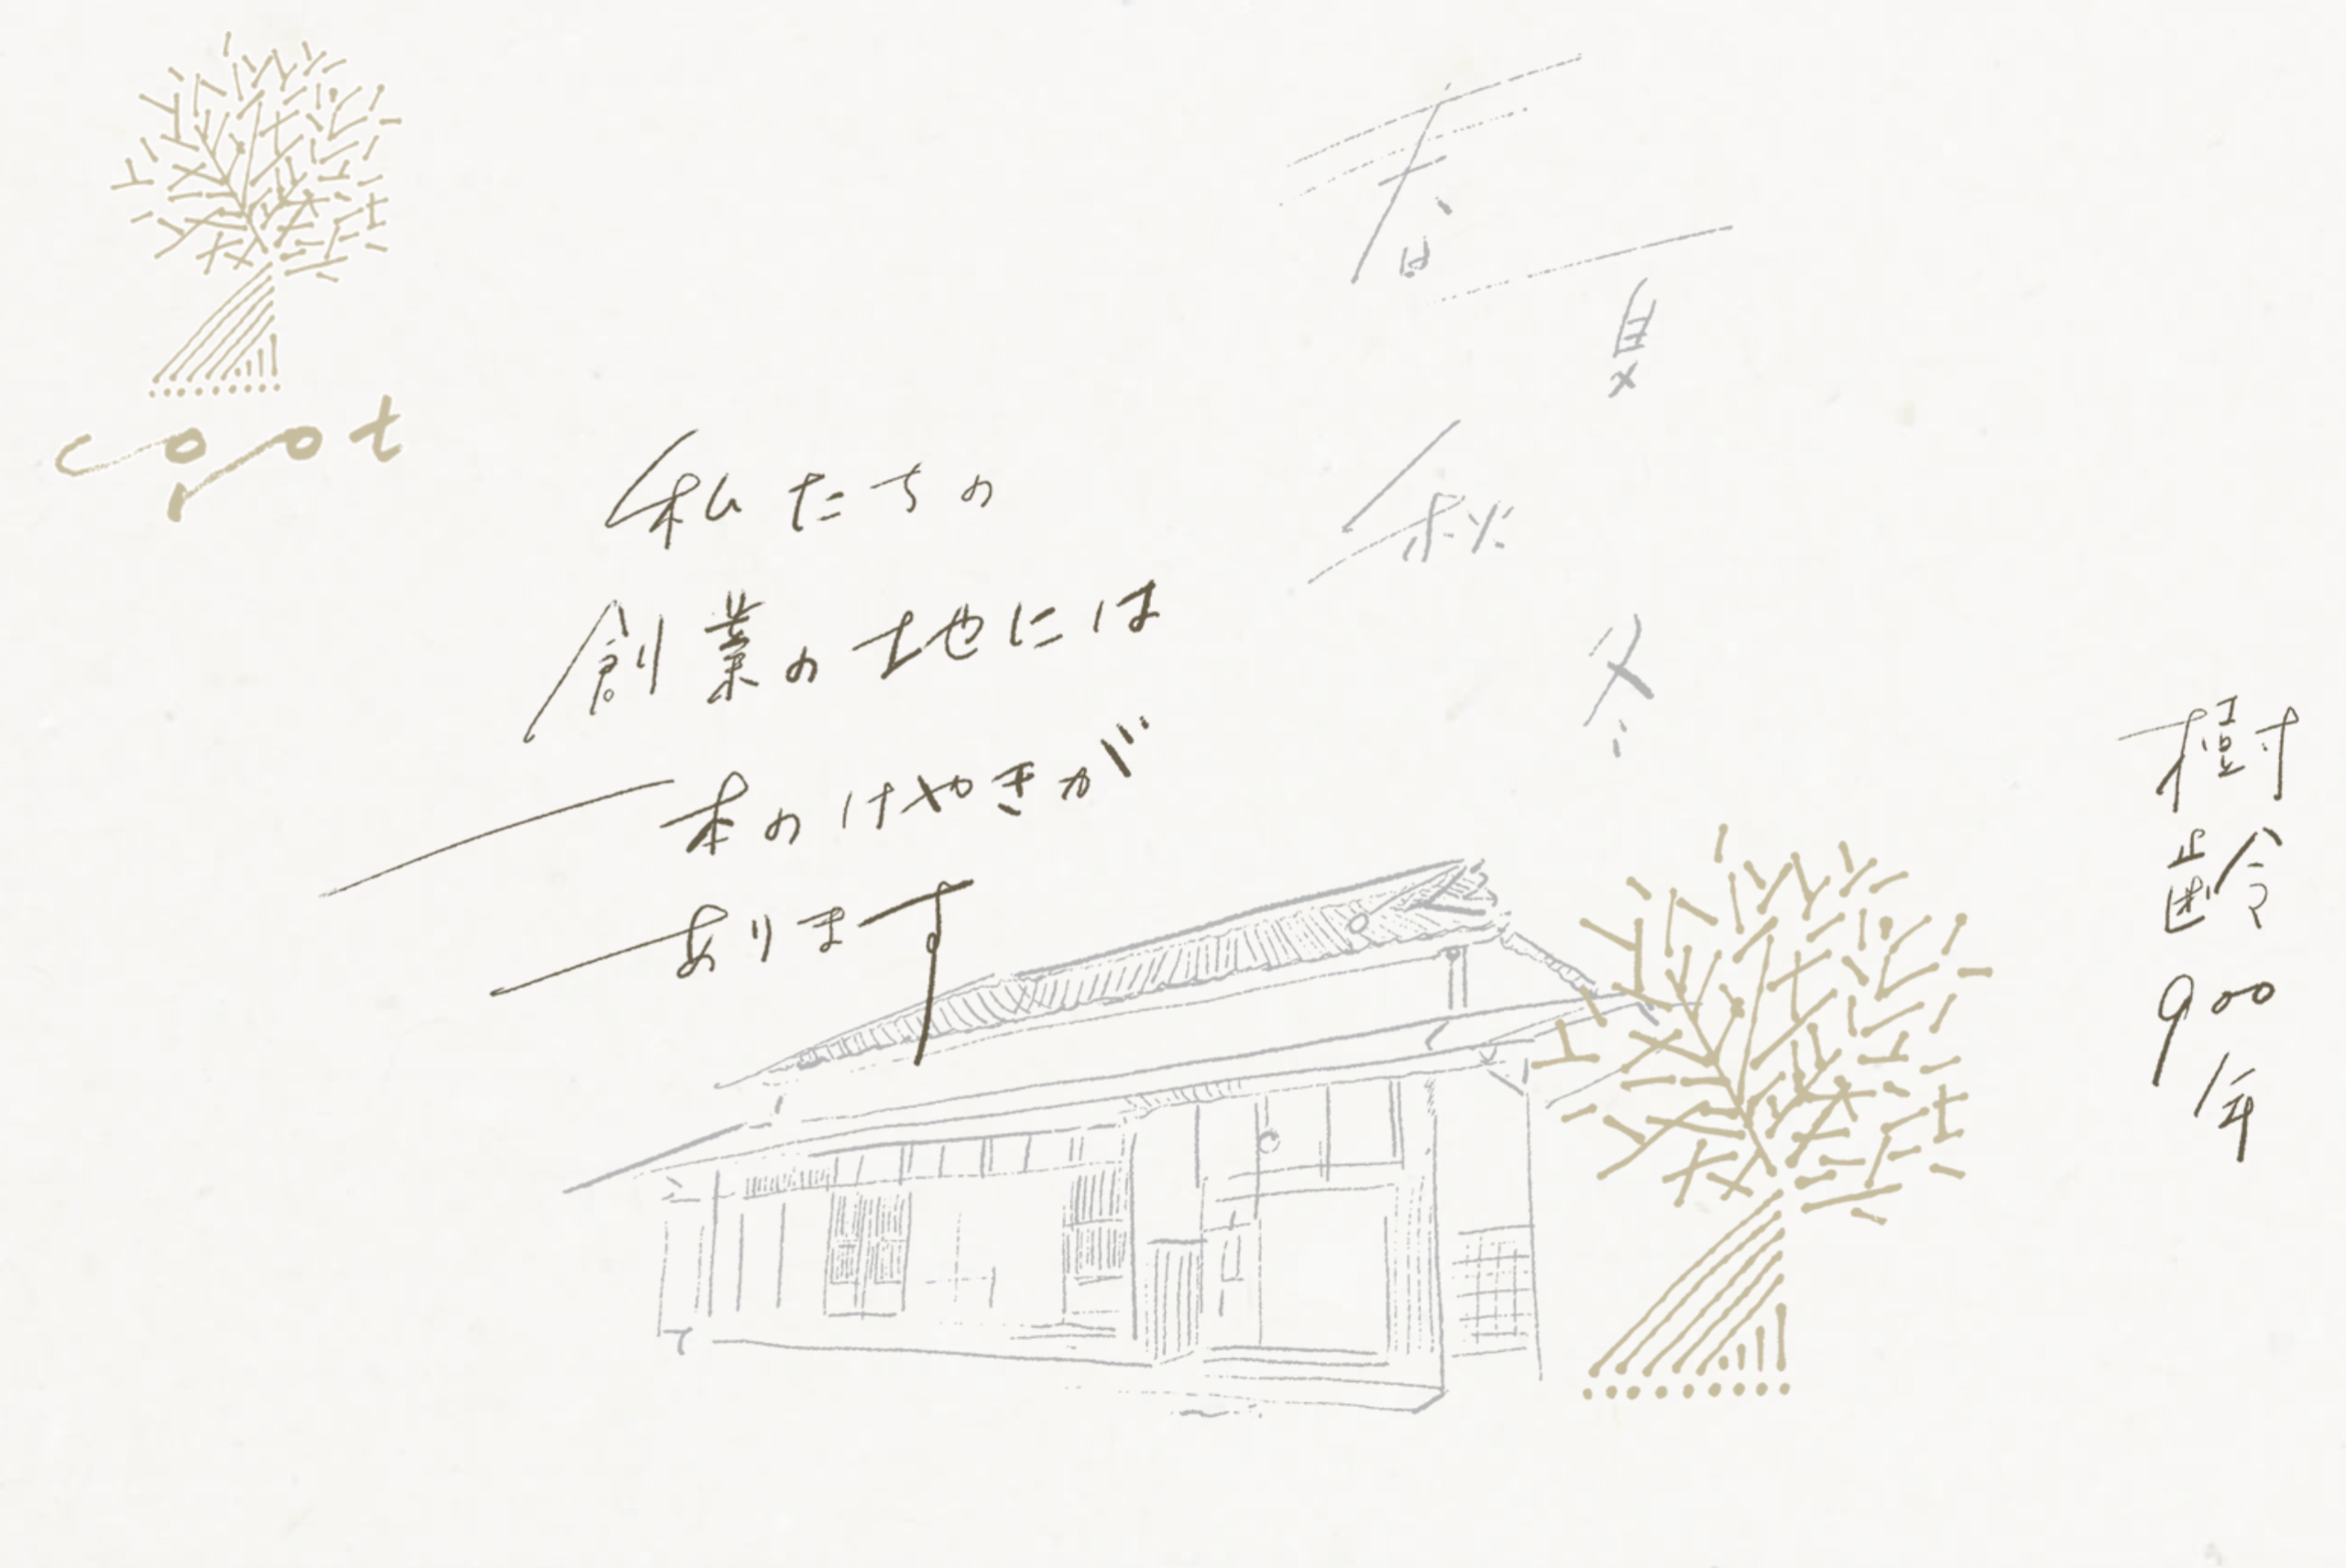 coot
私たちの
創業の地には
一本のけやきが
あります
春
夏
秋
冬
樹齢900年